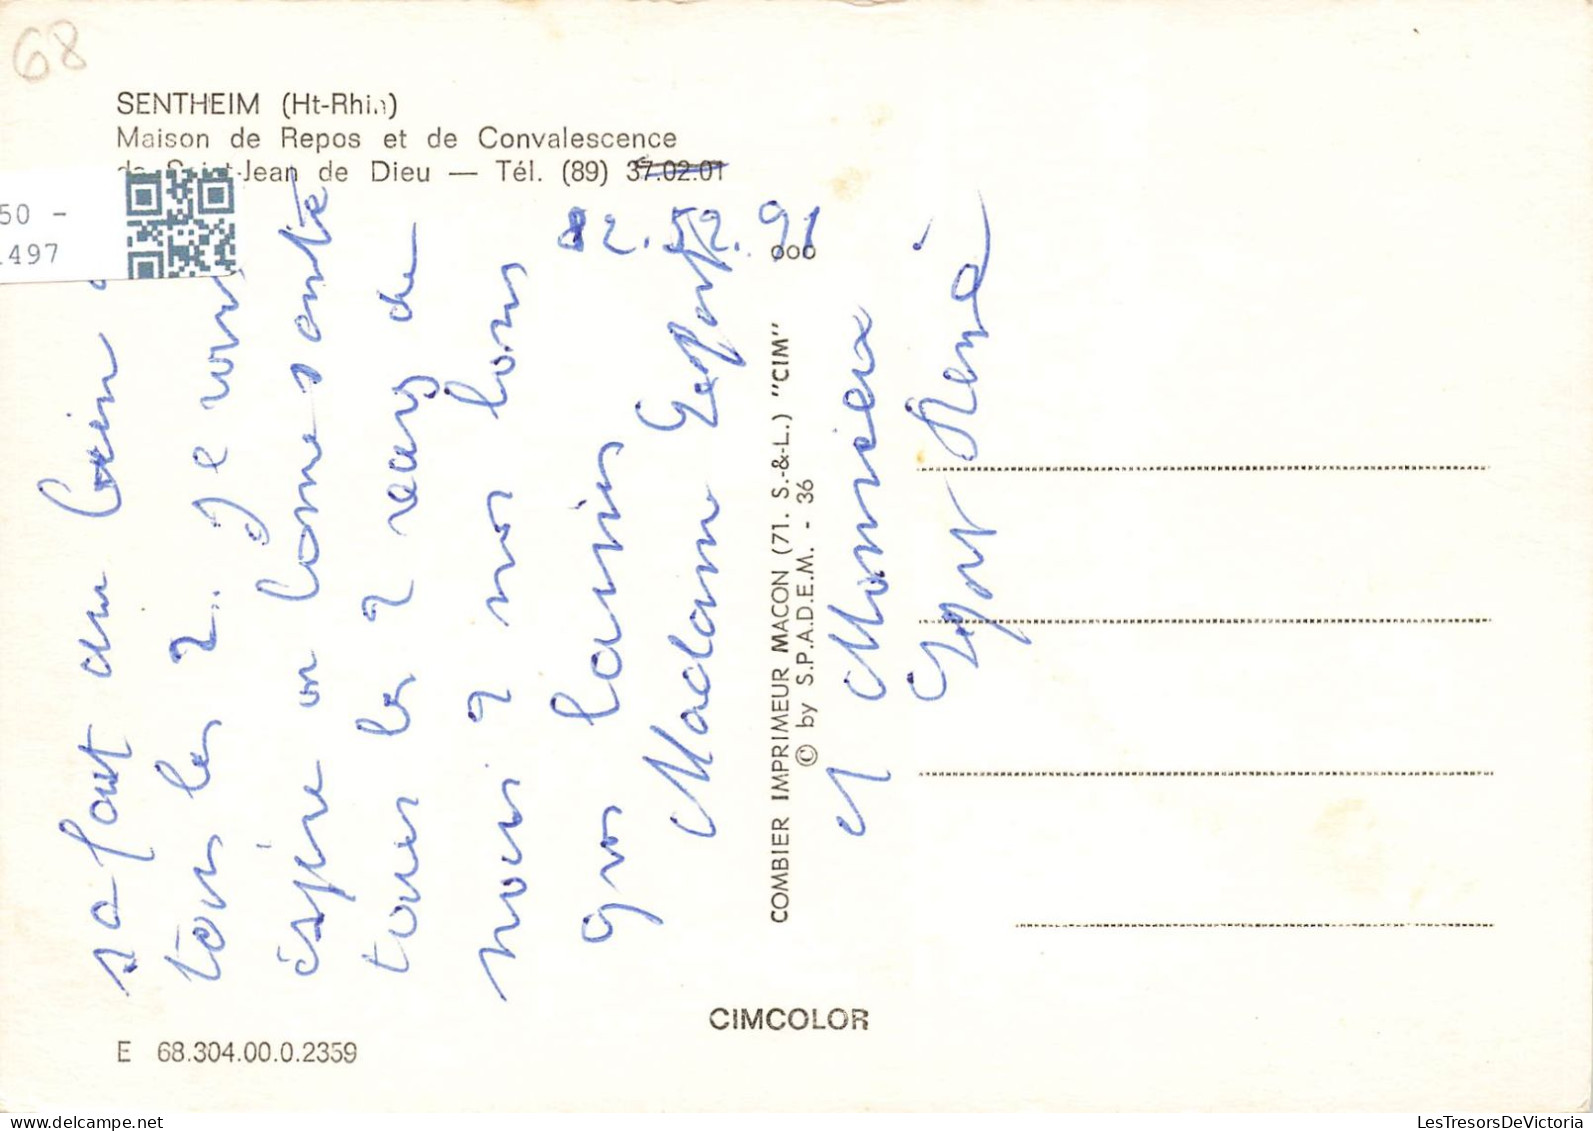 68
SENTHEIM (Ht-Rhin)
Maison de Repos et de Convalescence
de Saint-Jean de Dieu — Tél. (89) 37.02.01
82.52.91
50 -
1497
ooo
sa fait du bien
tous les 2. Je vous
éspère en bonne santé
tous les 2 reçu de
nous 2 nos bons
gros baisers
Madame
et Monsieur
René
COMBIER IMPRIMEUR MACON (71. S.-&-L.) "CIM"
© by S.P.A.D.E.M. - 36
CIMCOLOR
E 68.304.00.0.2359
LesTresorsDeVictoria